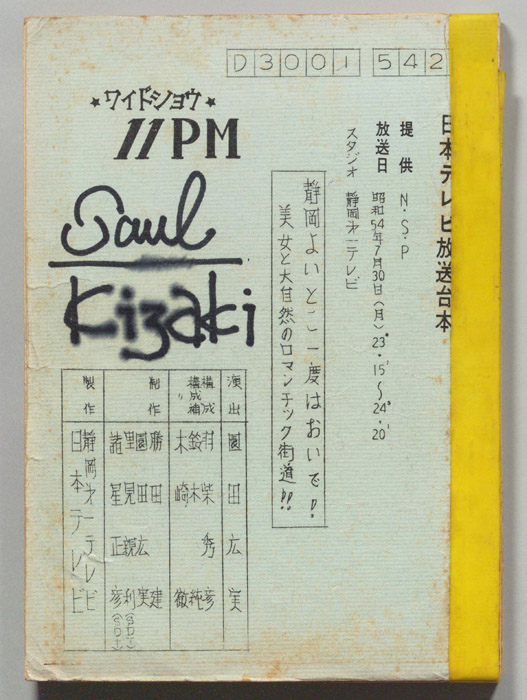 D3001 542
★ワイドショウ★
11PM
Saul
Kizaki
日本テレビ放送台本
提供 N・S・P
放送日 昭和54年7月30日(月) 23°・15′〜24°・20′
スタジオ 静岡㐧一テレビ
静岡よいとこ一度はおいで!
美女と大自然のロマンチック街道!!
演出 園田広実
構成 羽柴秀彦
構成補 鈴木純
〃 木崎徹
制作 勝田建
園田広実
里見
諸星正彦
製作 静岡㐧一テレビ
日本テレビ